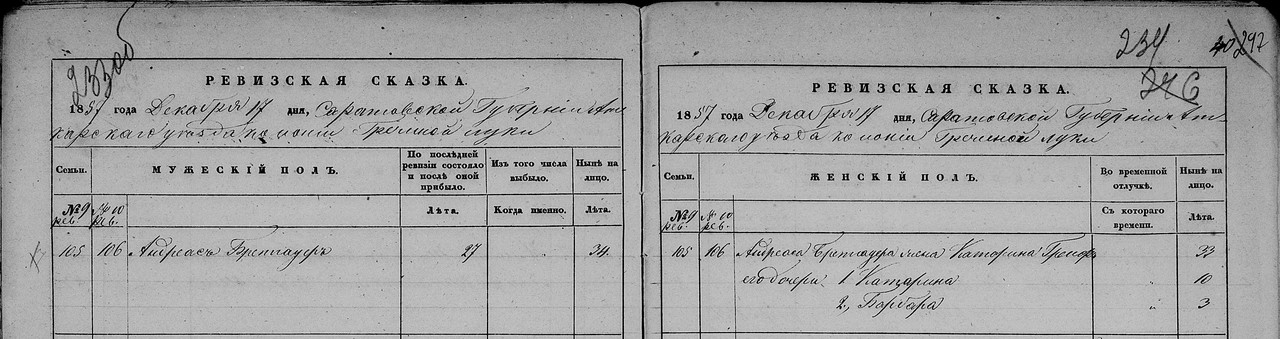 233об
РЕВИЗСКАЯ СКАЗКА.
1857 года Декабря 17 дня, Саратовской Губерніи Ат-
карскаго уѣзда колоніи Гречиной луки
Семьи.
МУЖЕСКІЙ ПОЛЪ.
По послѣдней ревизіи состояло и послѣ оной прибыло.
Изъ того числа выбыло.
Нынѣ на лицо.
№ 9 рев.
№ 10 рев.
Лѣта.
Когда именно.
Лѣта.
105 106 Андреасъ 27 34
234 297
246
РЕВИЗСКАЯ СКАЗКА.
1857 года Декабря 17 дня, Саратовской Губерніи Ат-
карскаго уѣзда колоніи Гречиной луки
Семьи.
ЖЕНСКІЙ ПОЛЪ.
Во временной отлучкѣ.
Нынѣ на лицо.
№ 9 рев.
№ 10 рев.
Съ котораго времени.
Лѣта.
105 106 Андреаса жена Катарина 33
его дочери 1 Катарина " 10
2, Барбара " 3